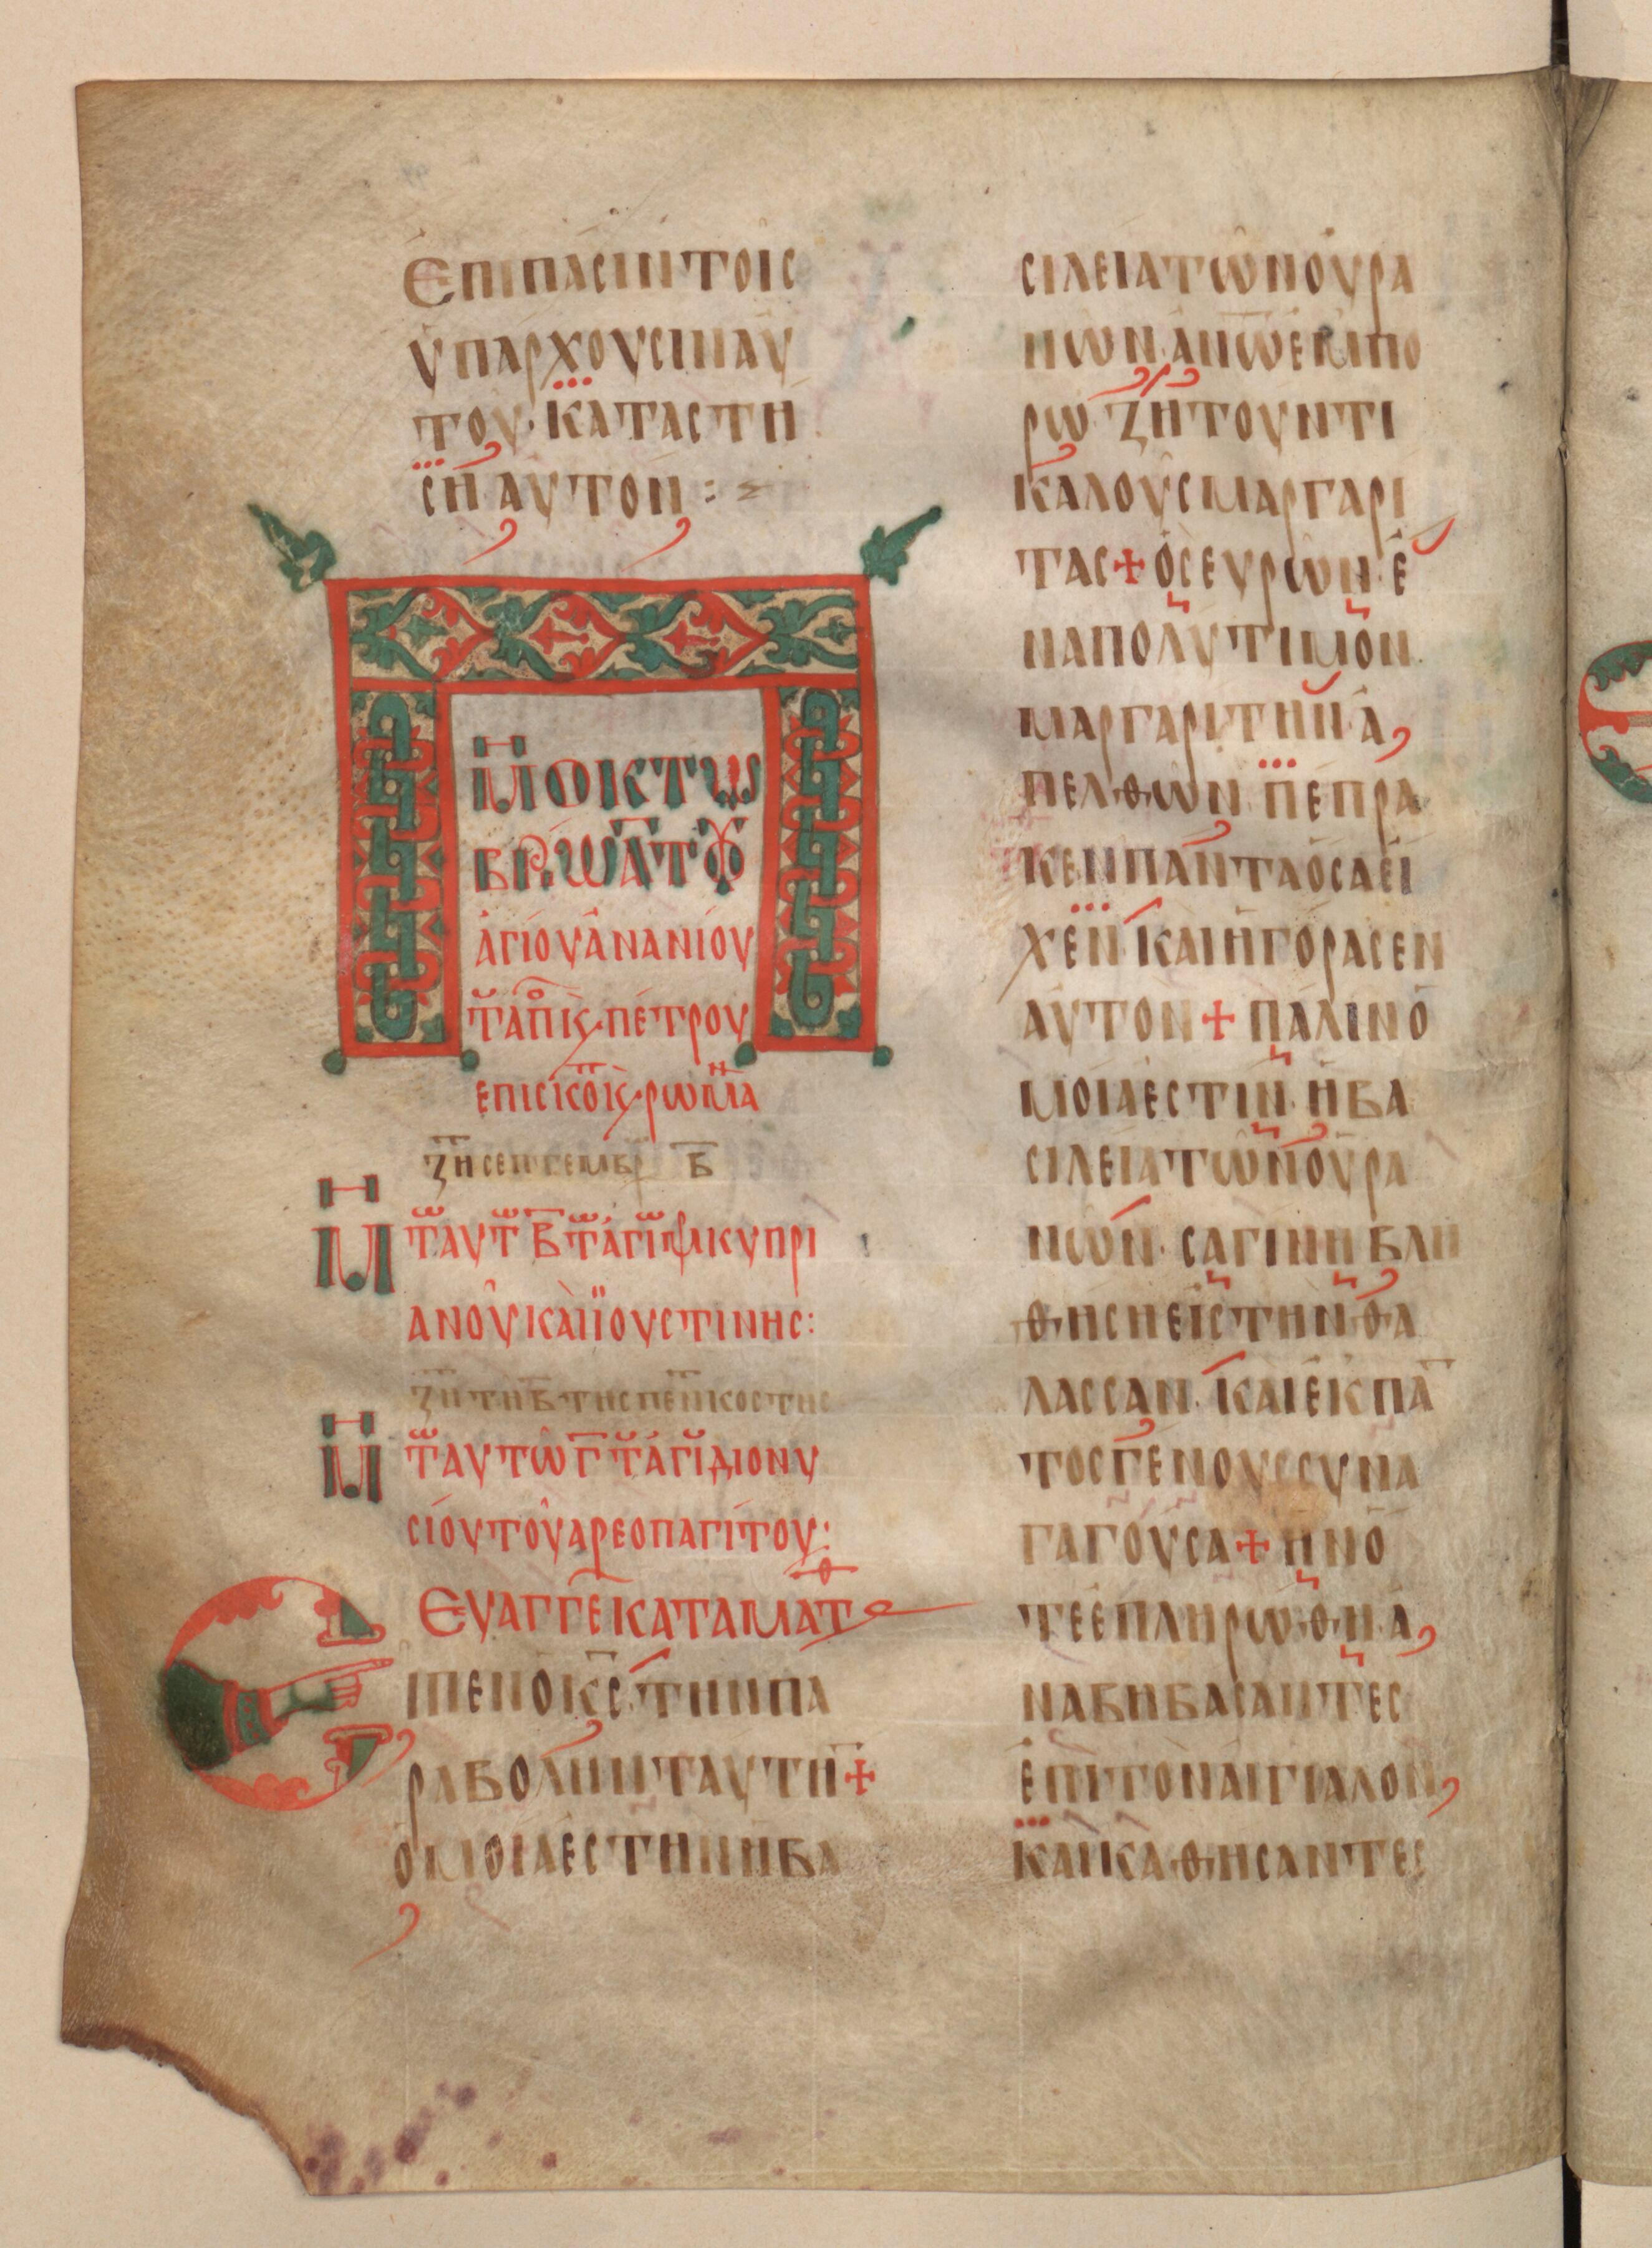 Επιπάσιντοις
ὑπάρχουσιναυ
του· κατάστη
ση αυτόν :
Μ οκτω
βρ ω Α τ
ἁγίου ἀνανίου
τ απ κ, πέτρου
επισκο κ, ρωμα
ζη σεπτεμβρ β
Μ τ αυτ β τ αγι κυπρι
ανοῦ καὶ ϊουστινης:
ζη τη β της πεντηκοστης
Μ τ αυτω γ τ αγι διονυ
σίου τοῦ αρεοπαγίτου:
Ευαγγε κατα ματ
Ειπεν ὁ κς την πα
ραβολην ταυτη +
ὁμοία ἐστην ἡ βα
σιλεία τῶν ουρα
νῶν ἀνω ἐμπο
ρω ζητουντι
καλοὺς μαργαρι
τας + ὁς ευρων ἑ
να πολύτιμον
μαργαριτην ἀ
πελθων πέπρα
κεν πάντα ὁσα εἰ
χεν και ἠγόρασεν
αυτον + πάλιν ὁ
μοία ἐστιν ἡ βα
σιλεία τῶν ουρα
νῶν σαγίνη βλη
θησηεις την θα
λασσαν και ἐκ πα
τος γενους συνα
γαγοῦσα + ην ὁ
τε ἐπληρώθη ἀ
ναβηβασαντες
ἐπι τον αιγιαλον
και καθησαντες